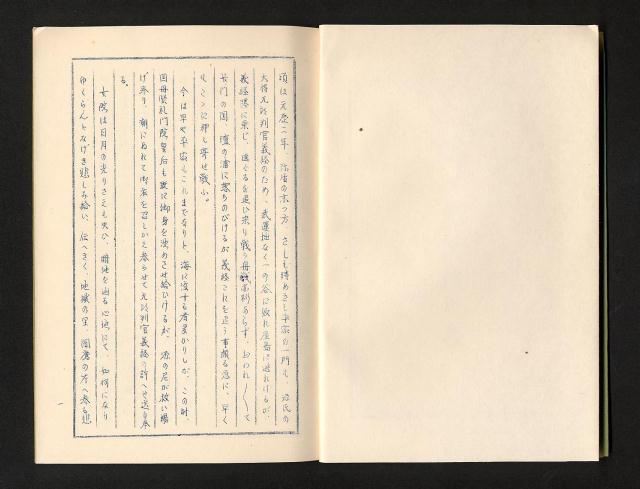 頃は元慶二年、弥生の末つ方、さしも時めきし平家の一門も、源氏の
大将九郎判官義経のため、武運拙なく一の谷に敗れ屋島に逃れけるが、
義経勝に乗じ、逃ぐるを追ひ来り戦う毎 利あらず、おわれ〱て
長門の国、壇の浦に落ちのびけるが義経これを追う事頗る急に、早く
も こゝに押し寄せ戦ふ。
今は早や平家もこれまでなりと、海に没する者多かりしが、この時、
国母賢礼門院皇后も既に御身を沈めさせ給ひけるが、源の尼が救い揚
げ参り、潮にぬれて御衣を召しかえ参らせて九郎判官義経の許へ送り参
る。
女院は日月の光りさえも失ひ、暗地を辿る心地にて、如何になり
ゆくらんとなげき悲しみ給い、伝へきく、地獄の里、閻魔の庁へ参る想
一